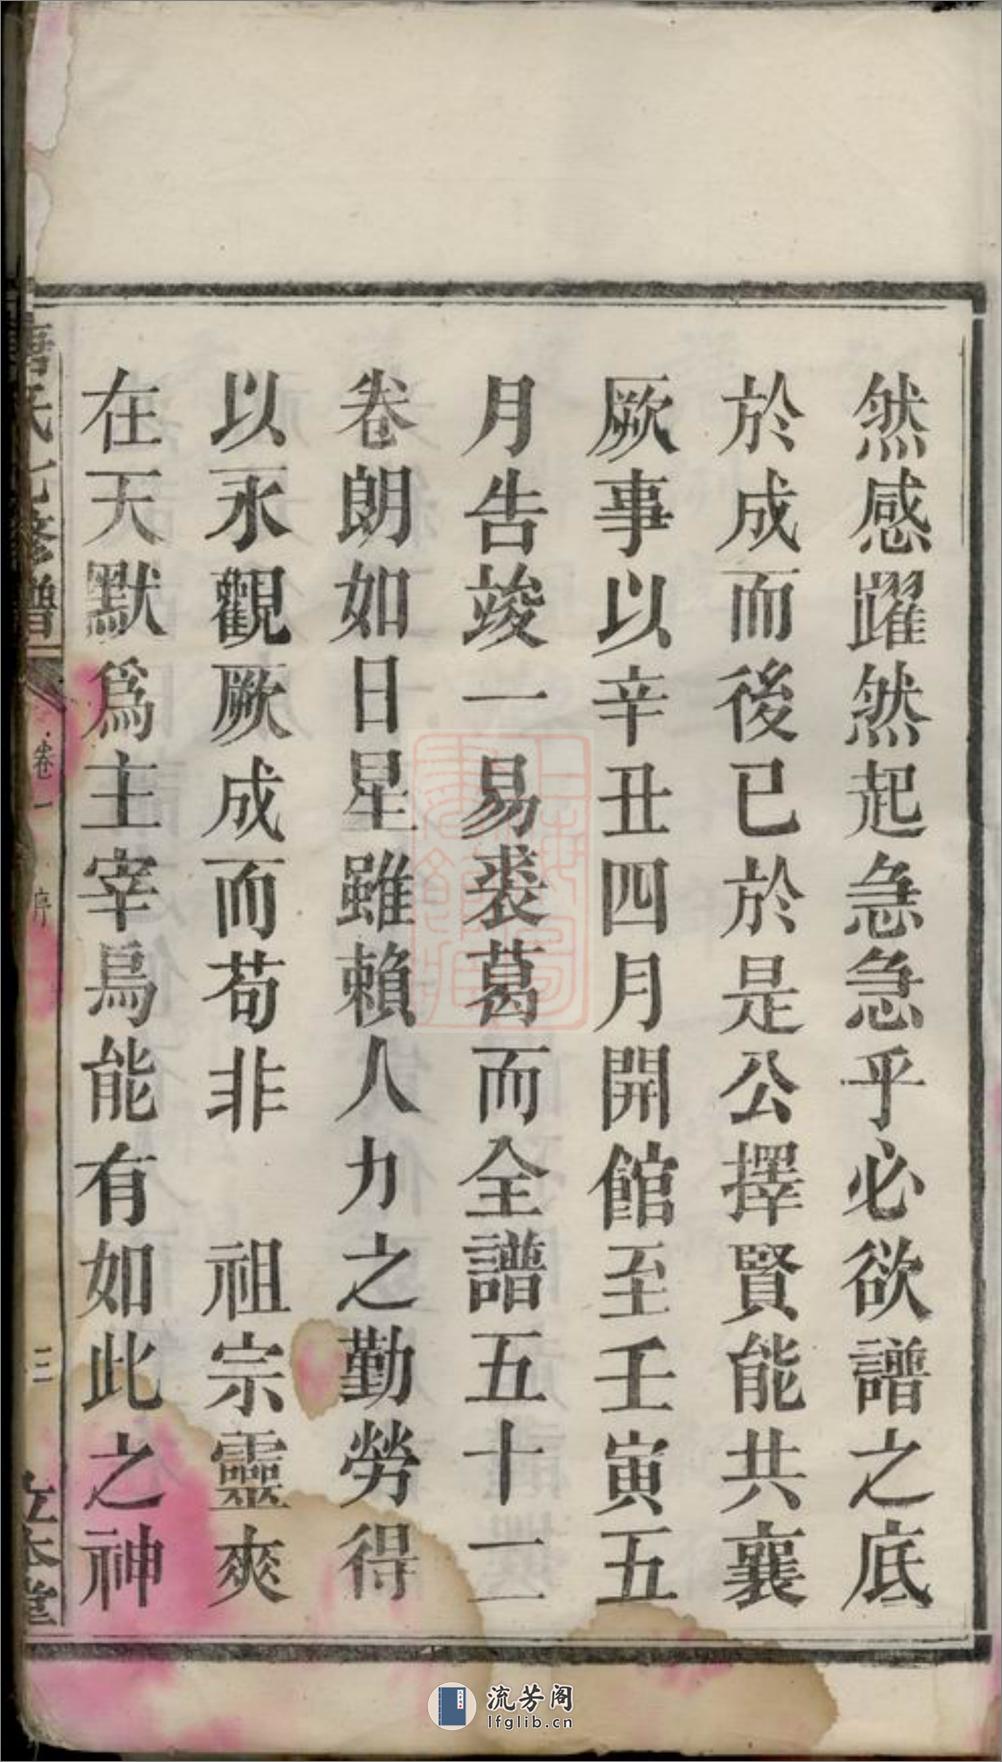 然感躍然起急急乎必欲譜之底
於成而後已於是公擇賢能共襄
厥事以辛丑四月開館至壬寅五
月告竣一易裘葛而全譜五十二
卷朗如日星雖賴人力之勤勞得
以永觀厥成而苟非 祖宗靈爽
在天默爲主宰焉能有如此之神
氏七修譜
卷一
序
三
立本堂
流芳阁
lfglib.cn